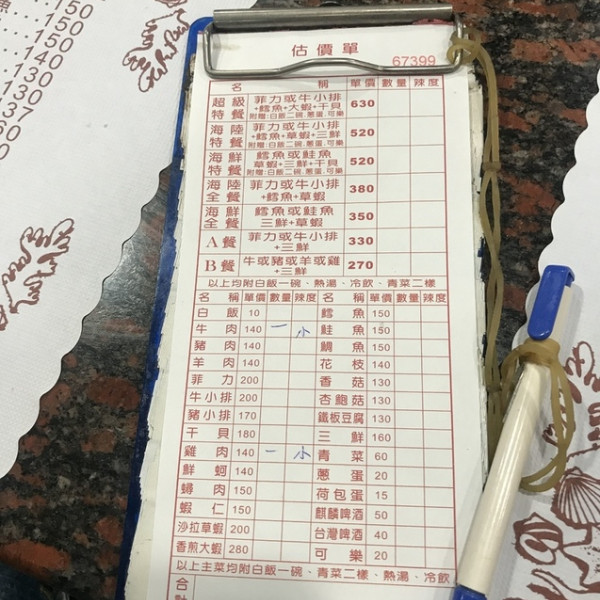 150
150
140
130
130
137
估價單
67399
名 稱 單價 數量 辣度
超級特餐 菲力或牛小排 +鱈魚+大蝦+干貝 附贈:白飯二碗.蔥蛋.可樂 630
海陸特餐 菲力或牛小排 +鱈魚+草蝦+三鮮 附贈:白飯二碗.蔥蛋.可樂 520
海鮮特餐 鱈魚或鮭魚 草蝦+三鮮+干貝 附贈:白飯二碗.蔥蛋.可樂 520
海陸全餐 菲力或牛小排 +鱈魚+草蝦 380
海鮮全餐 鱈魚或鮭魚 三鮮+草蝦 350
A餐 菲力或牛小排 +三鮮 330
B餐 牛或豬或羊或雞 +三鮮 270
以上均附白飯一碗、熱湯、冷飲、青菜二樣
名 稱 單價 數量 辣度 名 稱 單價 數量 辣度
白飯 10 鱈魚 150
牛肉 140 一 小 鮭魚 150
豬肉 140 鯛魚 150
羊肉 140 花枝 140
菲力 200 香菇 130
牛小排 200 杏鮑菇 130
豬小排 170 鐵板豆腐 130
干貝 180 三鮮 160
雞肉 140 一 小 青菜 60
鮮蚵 140 蔥蛋 20
蟳肉 150 荷包蛋 15
蝦仁 150 麒麟啤酒 50
沙拉草蝦 200 台灣啤酒 40
香煎大蝦 280 可樂 20
以上主菜均附白飯一碗、青菜二樣、熱湯、冷飲
合